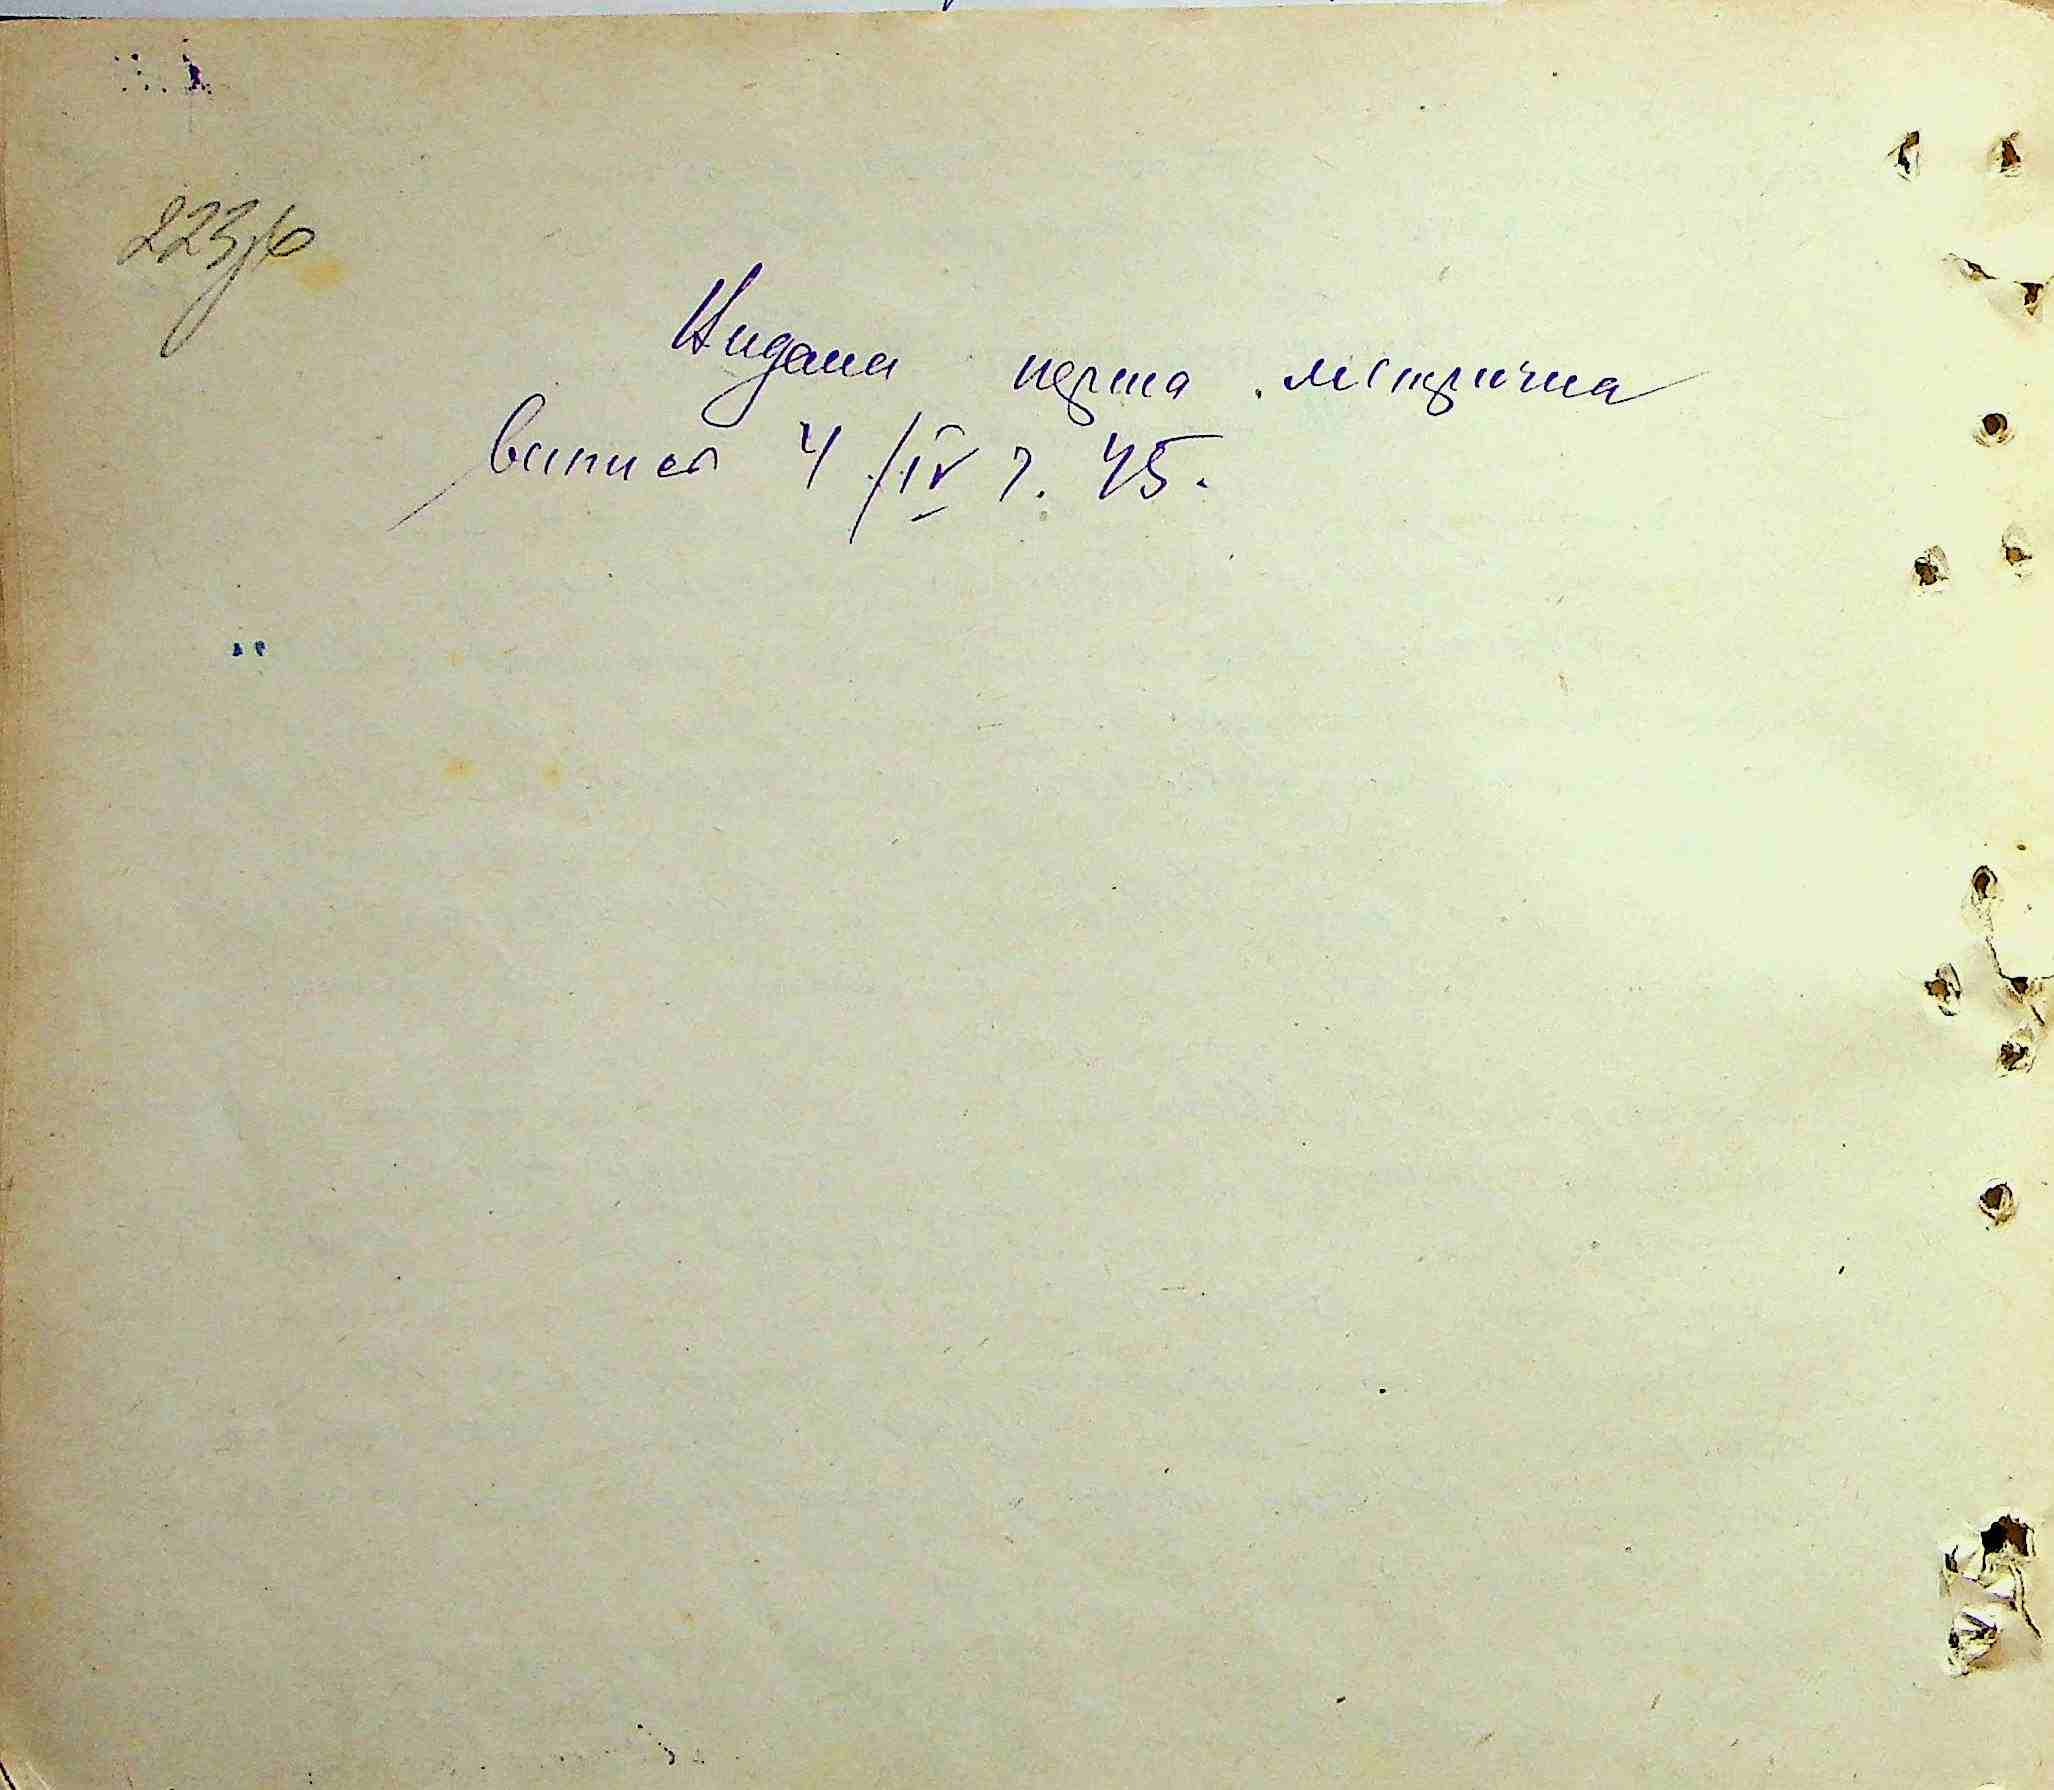 223зв
Видана перша метрична
випись 4/IV р. 45.